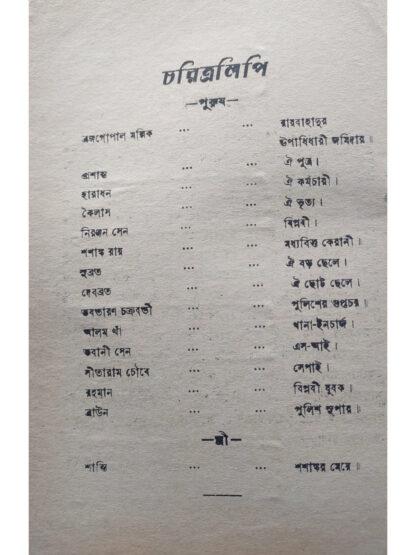 চরিত্রলিপি
—পুরুষ—
ব্রজগোপাল মল্লিক ... ... রায়বাহাদুর
উপাধিধারী জমিদার।
প্রশান্ত ... ... ঐ পুত্র।
হারাধন ... ... ঐ কর্মচারী।
কৈলাস ... ... ঐ ভৃত্য।
নিরঞ্জন সেন ... ... বিপ্লবী।
শশাঙ্ক রায় ... ... মধ্যবিত্ত কেরানী।
সুব্রত ... ... ঐ বড় ছেলে।
দেবব্রত ... ... ঐ ছোট ছেলে।
ভবতারণ চক্রবর্তী ... ... পুলিশের গুপ্তচর।
আলম খাঁ ... ... থানা-ইনচার্জ।
ভবানী সেন ... ... এস-আই।
সীতারাম চৌবে ... ... সেপাই।
রহমান ... ... বিপ্লবী যুবক।
ব্রাউন ... ... পুলিশ সুপার।
—স্ত্রী—
শান্তি ... ... শশাঙ্কর মেয়ে।